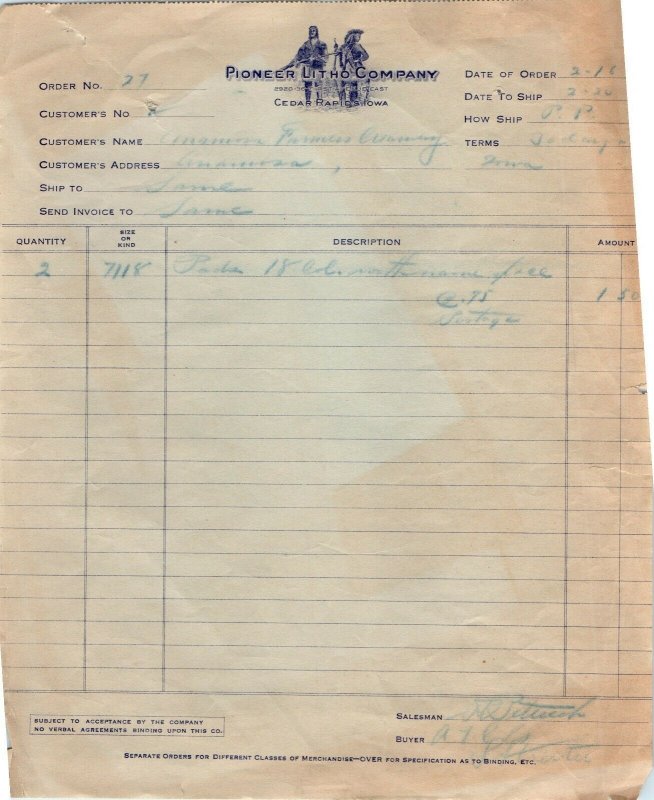 PIONEER LITHO COMPANY
CEDAR RAPIDS, IOWA
ORDER NO. 27
DATE OF ORDER 2-16
DATE TO SHIP 2-20
CUSTOMER'S NO
HOW SHIP P. P.
CUSTOMER'S NAME Anamosa Farmers Creamery
TERMS
CUSTOMER'S ADDRESS Anamosa, Iowa
SHIP TO Same
SEND INVOICE TO Same
QUANTITY SIZE OR KIND DESCRIPTION AMOUNT
2 7118 Pads 18 Col. with name space
@ .75 1 50
Postage
SUBJECT TO ACCEPTANCE BY THE COMPANY
NO VERBAL AGREEMENTS BINDING UPON THIS CO.
SALESMAN
BUYER
SEPARATE ORDERS FOR DIFFERENT CLASSES OF MERCHANDISE—OVER FOR SPECIFICATION AS TO BINDING, ETC.